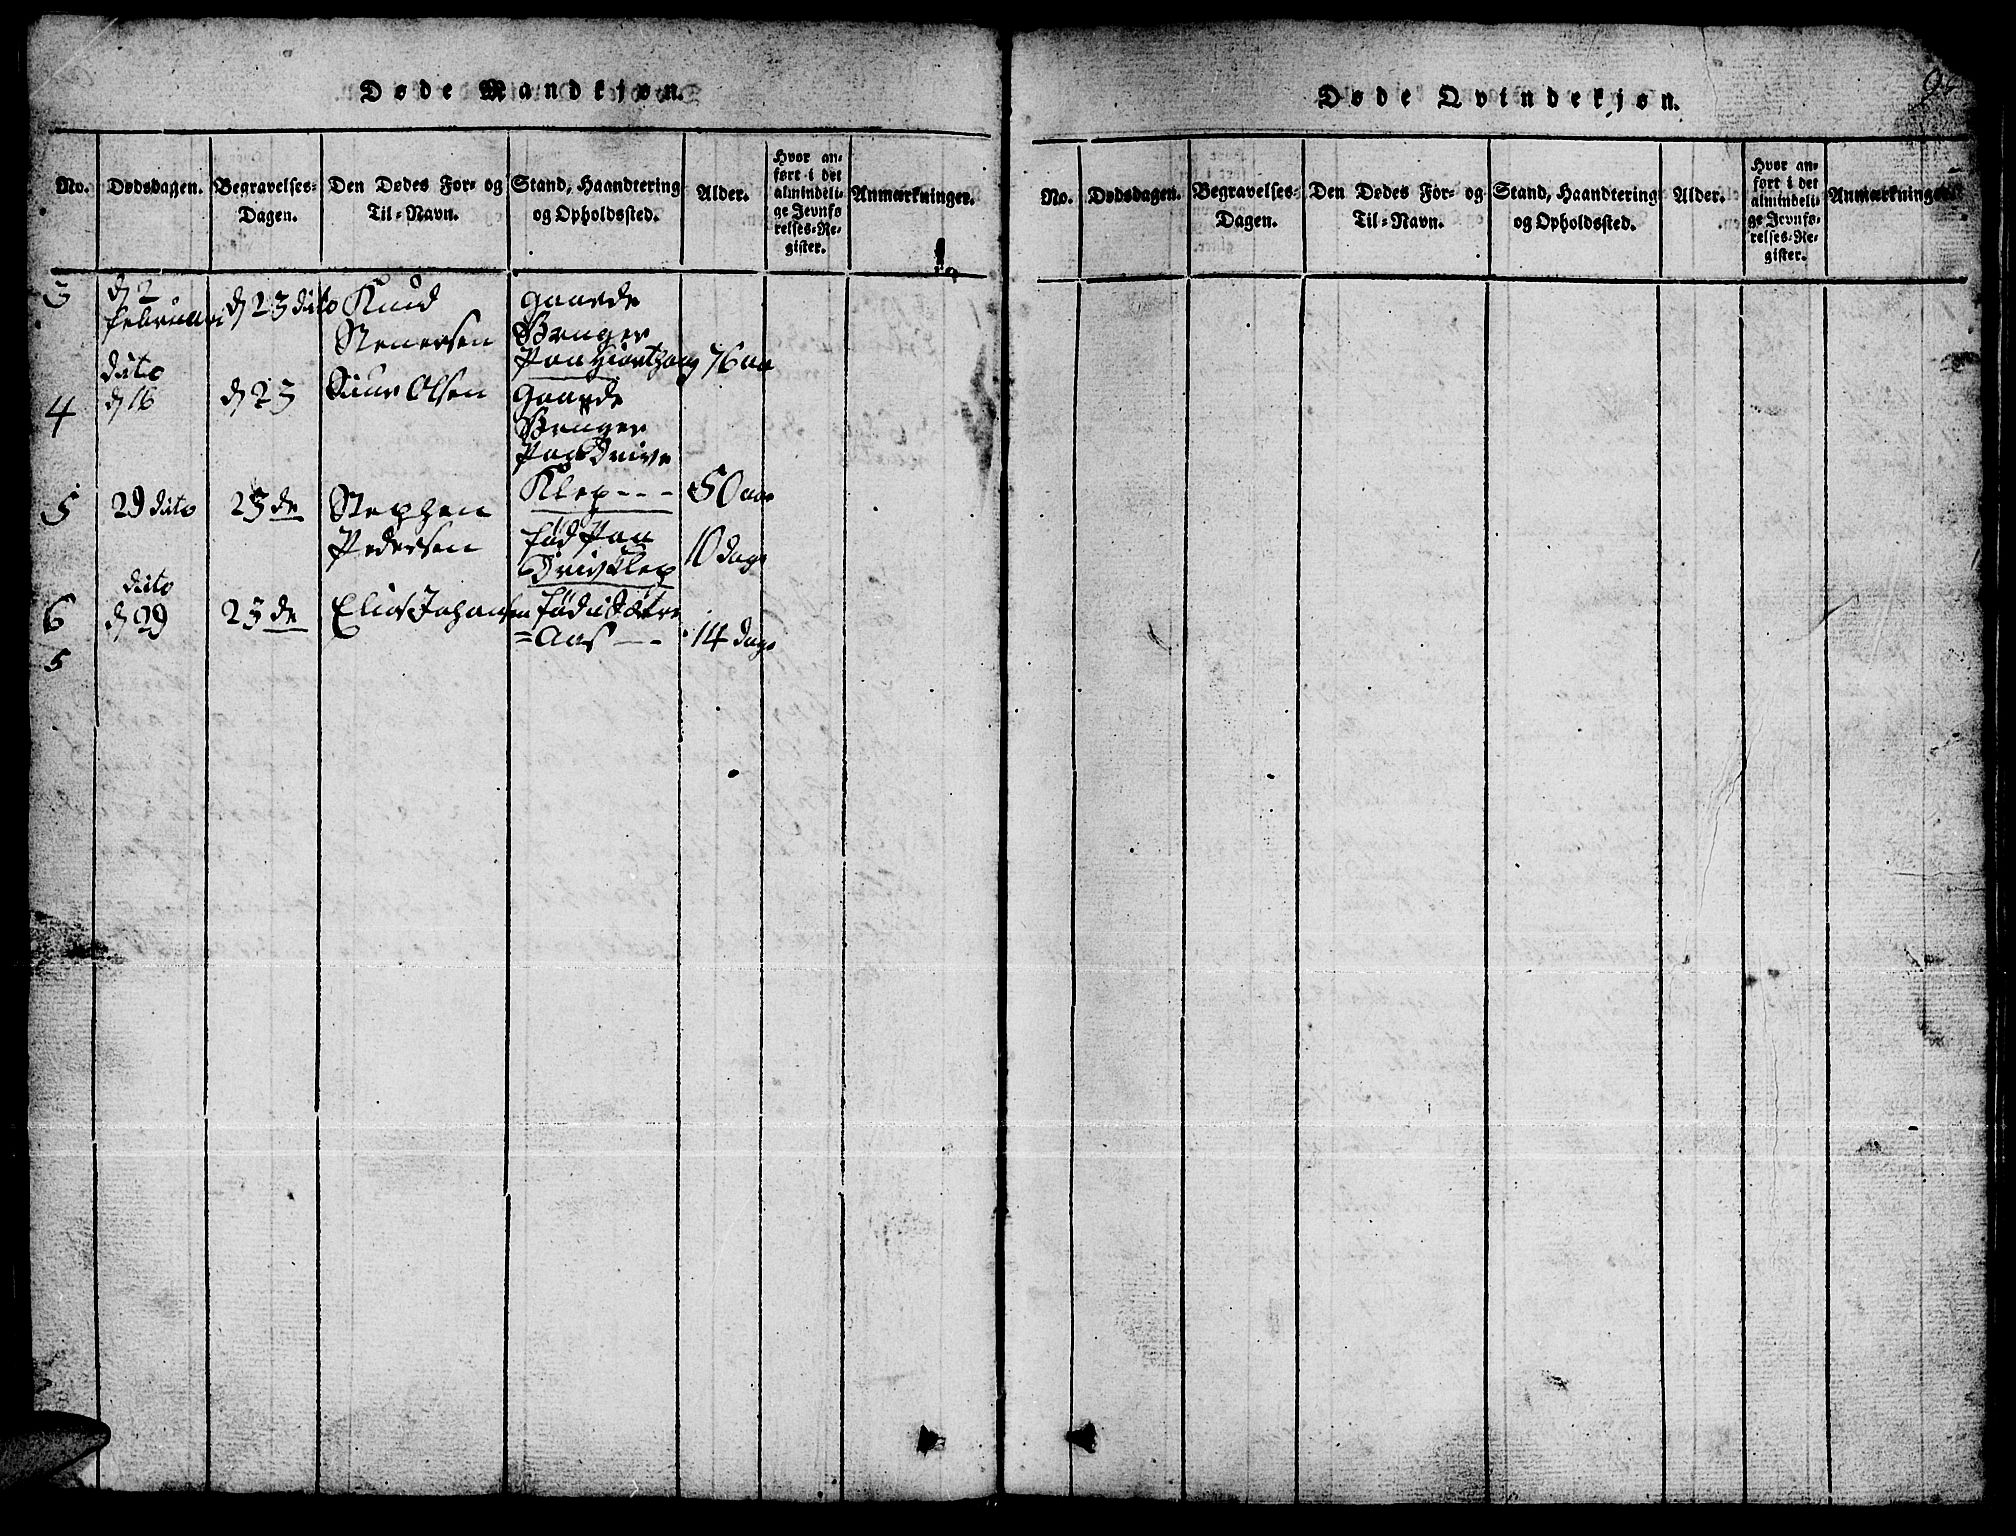 Døde Mandkjøn.
No. Dødsdagen. Begravelses-Dagen. Den Dødes For- og Til-Navn. Stand, Haandtering og Opholdssted. Alder. Hvor anført i det almindelige Jevnførelses-Register. Anmærkninger.
3 d 2 februari d 23 dito Knud Stenersen gaarde Bruger Paa Hiortzaug 76 aar
4 dito d 16 d 23 Knud Olsen gaarde Bruger Paa Driva Klep - - - 50 aar
5 29 dito 23 de Stephen Pedersen fød Paa Driv Klep 10 dage
6 dito d 29 23 de Elias Johansen fød i Sætre = Aas - - - 14 dage
5
Døde Qvindekjøn.
No. Dødsdagen. Begravelses-Dagen. Den Dødes For- og Til-Navn. Stand, Haandtering og Opholdssted. Alder. Hvor anført i det almindelige Jevnførelses-Register. Anmærkninger.